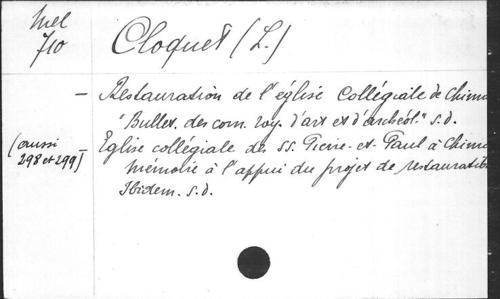 Mel
710
Cloquet (L.)
— Restauration de l'église Collégiale de Chima
"Bullet. des com. roy. d'art et d'archéol." s.d.
(aussi
298 et 299)
— Eglise collégiale de SS. Pierre et Paul à Chima
mémoire à l'appui du projet de restauratio
Ibidem. s.d.